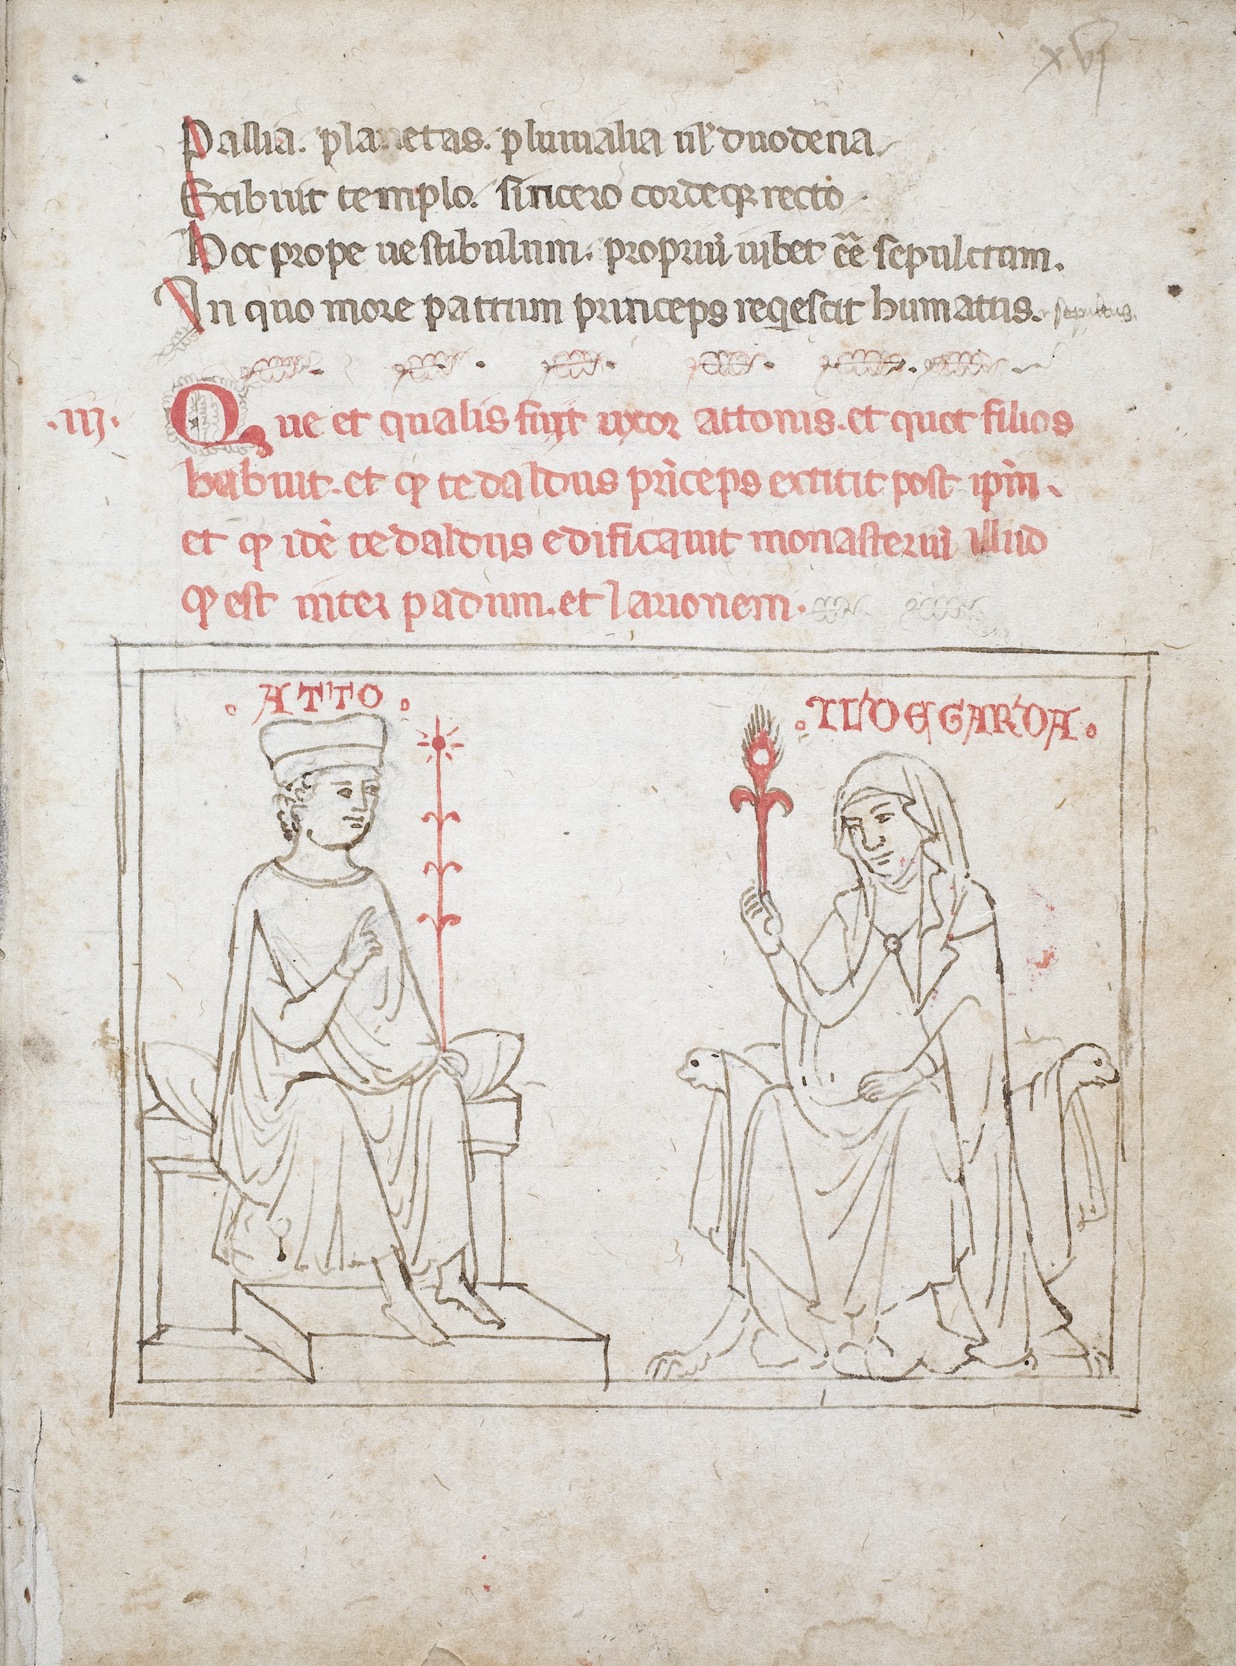 xvj
Pallia. planetas. pluuialia uł duodena
Exibuit templo. sincero cordeqz recto
Hoc prope uestibulum. propriū iubet ēē sepulcrum.
In quo more patrum princeps reqescit humatus. sepultus.
.iij. Que et qualis fuit uxor attonis. et quot filios
habuit. et qp tedaldus prīceps extitit post ipm̄.
et qp idē tedaldus edificauit monasteriū illud
qp est inter padum. et larionem.
. ATTO .
. ILDEGARDA .